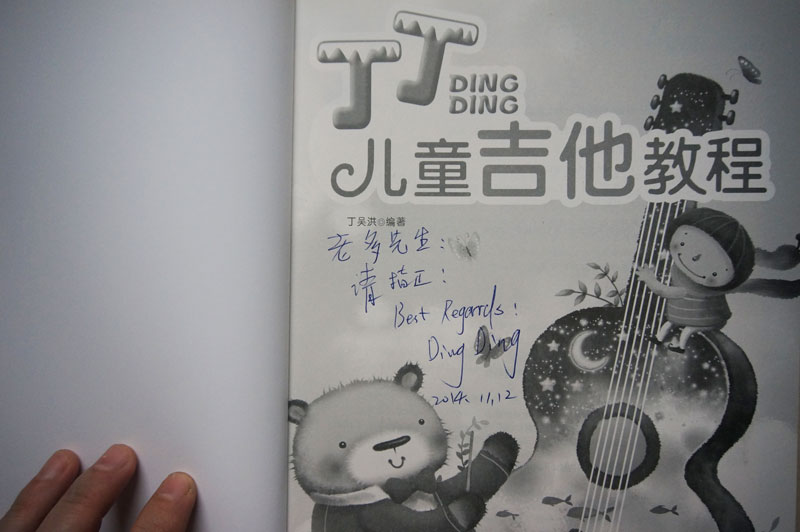 丁丁
DING
DING
儿童吉他教程
丁吴洪◎编著
老多先生:
请指正:
Best Regards:
Ding Ding
2014. 11, 12